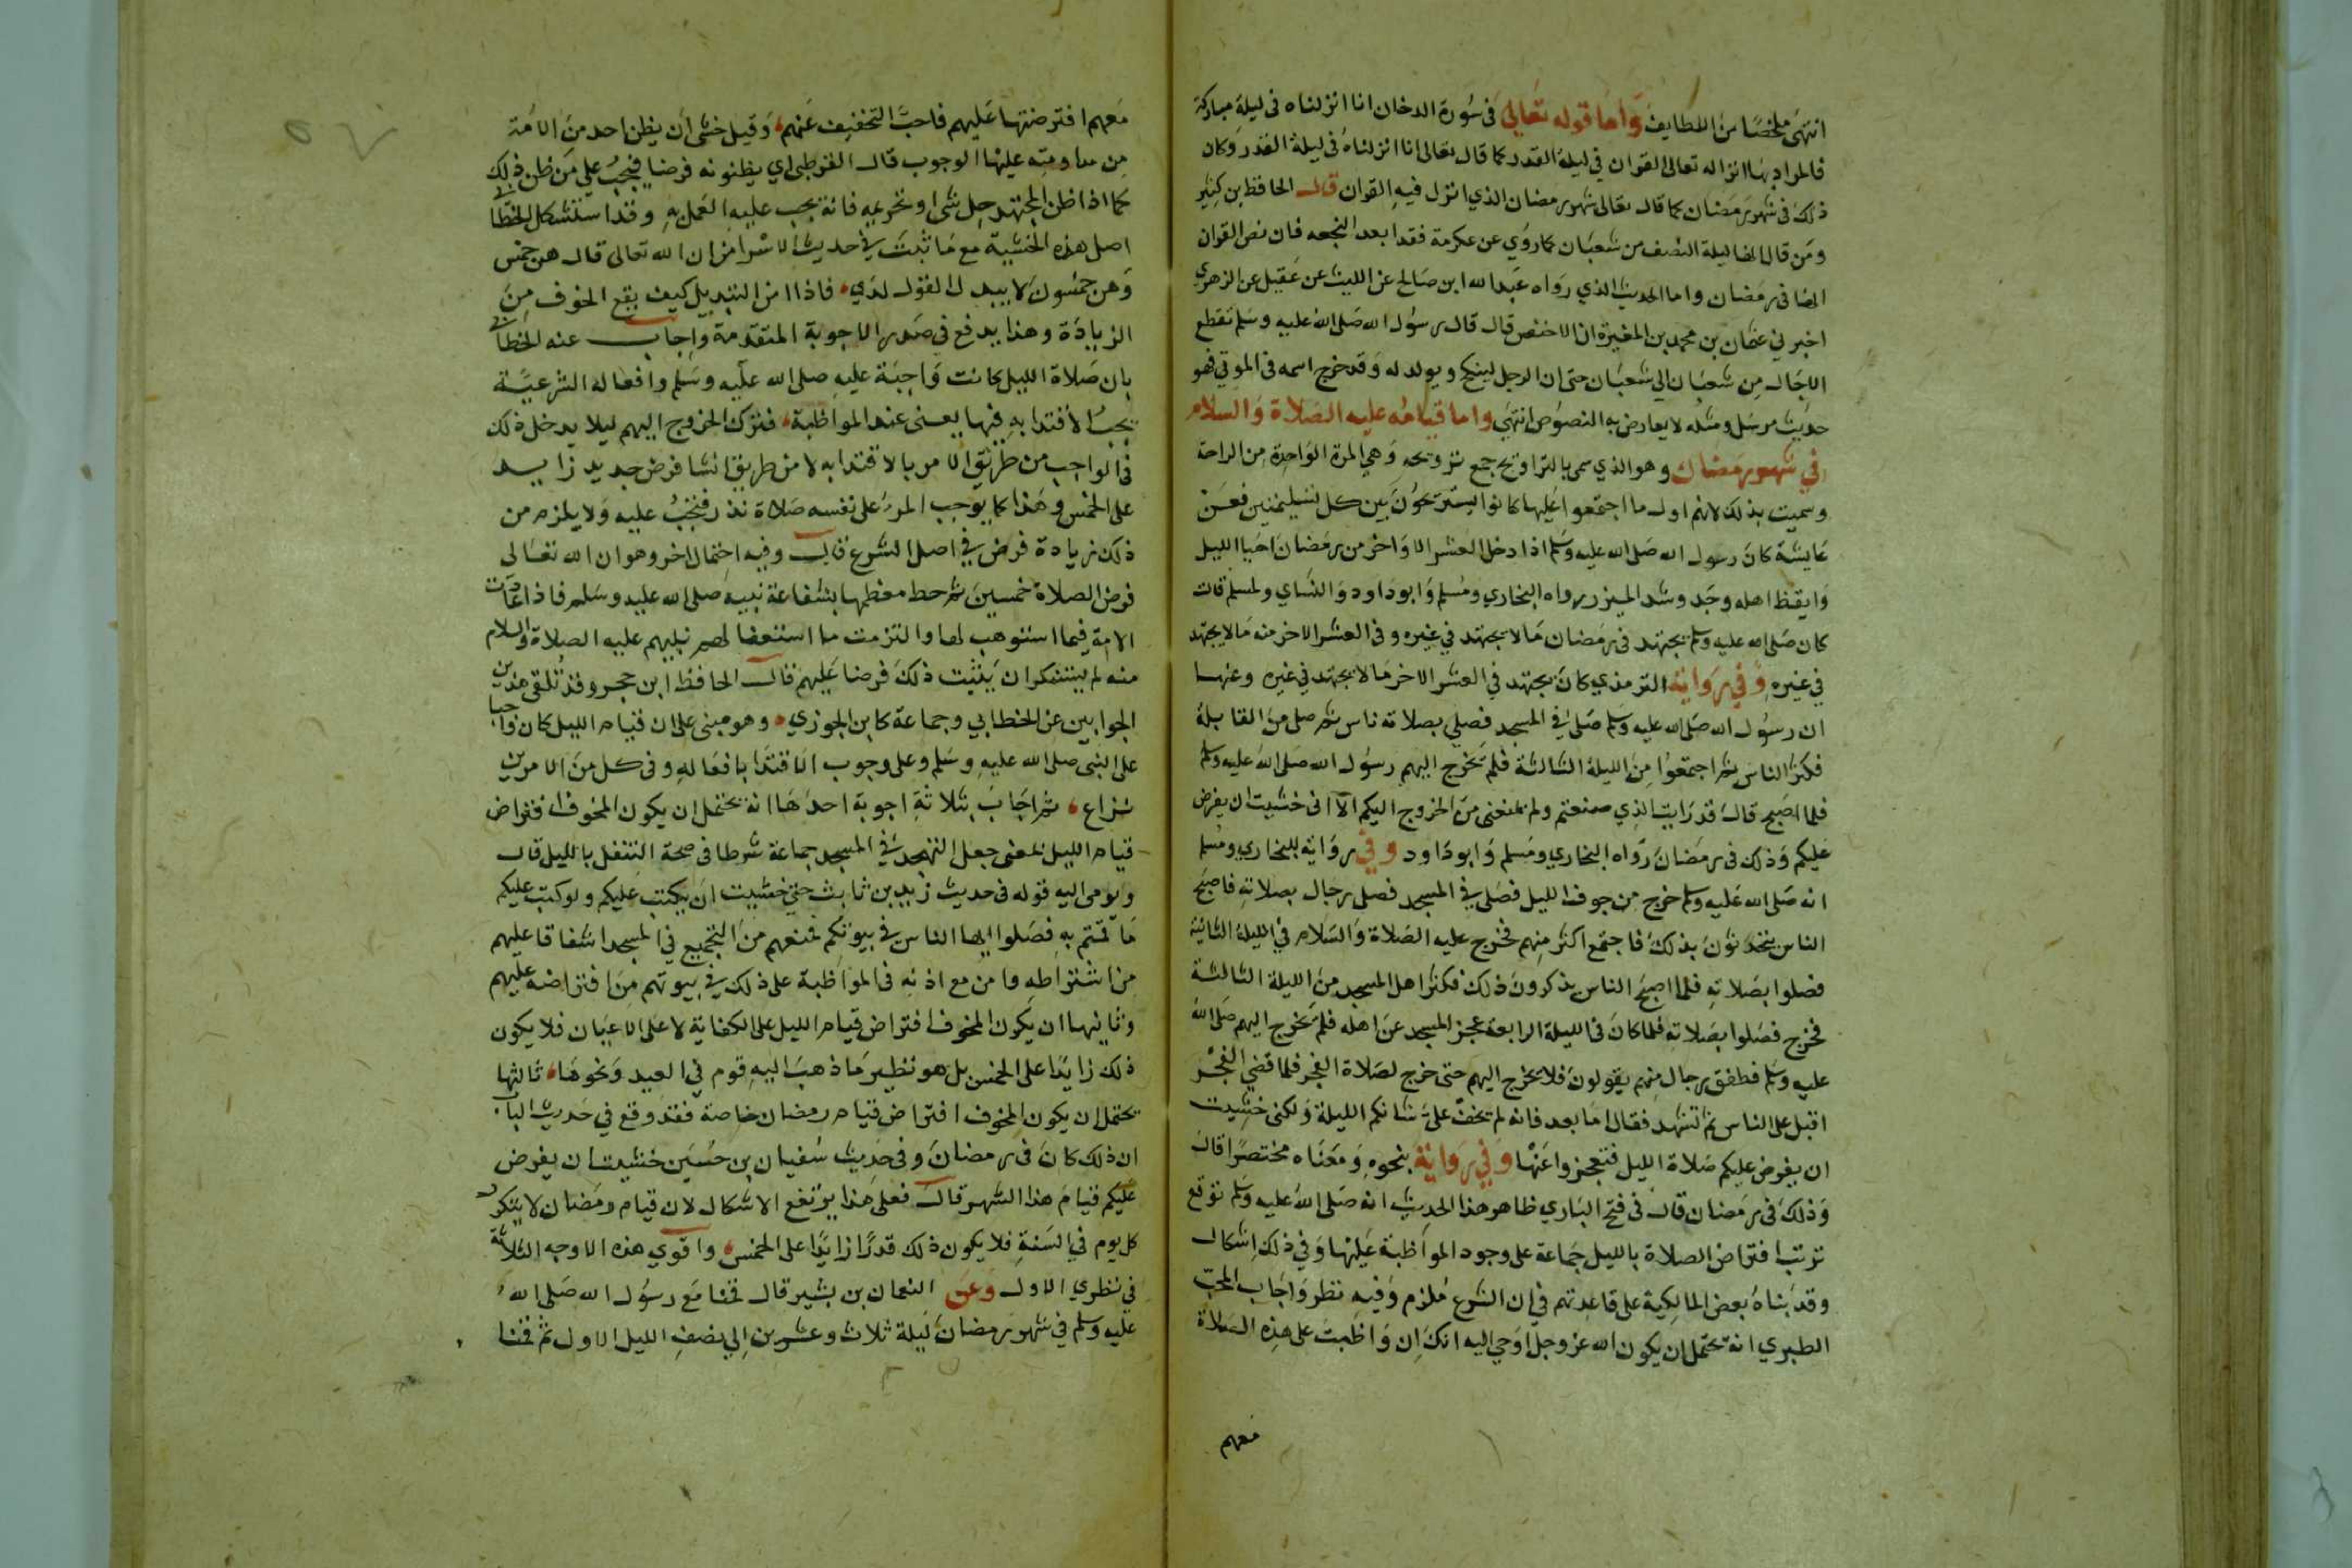 انتهى ملخصا من اللطايف واما قوله تعالى في سورة الدخان انا انزلناه في ليلة مباركة
فالمراد بها انزاله تعالى القران في ليلة القدر كما قال تعالى انا انزلناه في ليلة القدر وكان
ذلك في شهر رمضان كما قال تعالى شهر رمضان الذي انزل فيه القران قال الحافظ بن كثير
ومن قال انها ليلة النصف من شعبان كما روي عن عكرمة فقد ابعد النجعه فان نص القران
انها في رمضان واما الحديث الذي رواه عبد الله ابن صالح عن الليث عن عقيل عن الزهري
اخبرني عثمان بن محمد بن المغيرة ان الاخنس قال قال رسول الله صلى الله عليه وسلم تقطع
الاجال من شعبان الي شعبان حتى ان الرجل لينكح ويولد له وقد خرج اسمه في الموتي فهو
حديث مرسل ومثله لا يعارض به النصوص انتهى واما قيامه عليه الصلاة والسلام
في شهر رمضان وهو الذي سمي بالتراويح جمع ترويحه وهي المرة الواحدة من الراحة
وسميت بذلك لانهم اول ما اجتمعوا عليها كانوا يستريحون بين كل تسليمتين فعن
عايشة كان رسول الله صلى الله عليه وسلم اذا دخل العشر الاواخر من رمضان احيا الليل
وايقظ اهله وجد وشد الميزر رواه البخاري ومسلم وابو داود والنساي ولمسلم قالت
كان صلى الله عليه وسلم يجتهد في رمضان ما لا يجتهد في غيره وفي العشر الاخر منه ما لا يجتهد
في غيره وفي رواية الترمذي كان يجتهد في العشر الاخر ما لا يجتهد في غيره وعنها
ان رسول الله صلى الله عليه وسلم صلى في المسجد فصلي بصلاته ناس ثم صلى من القابلة
فكثر الناس ثم اجتمعوا من الليلة الثالثة فلم يخرج اليهم رسول الله صلى الله عليه وسلم
فلما اصبح قال قد رايت الذي صنعتم ولم يمنعني من الخروج اليكم الا اني خشيت ان يفرض
عليكم وذلك في رمضان رواه البخاري ومسلم وابو داود وفي رواية للبخاري ومسلم
انه صلى الله عليه وسلم خرج من جوف الليل فصلى في المسجد فصلى رجال بصلاته فاصبح
الناس يتحدثون بذلك فاجتمع اكثر منهم فخرج عليه الصلاة والسلام في الليلة الثانية
فصلوا بصلاته فلما اصبح الناس يذكرون ذلك فكثر اهل المسجد من الليلة الثالثة
فخرج فصلوا بصلاته فلما كان في الليلة الرابعة عجز المسجد عن اهله فلم يخرج اليهم صلى الله
عليه وسلم فطفق رجال منهم يقولون فلا يخرج اليهم حتى خرج لصلاة الفجر فلما قضي الفجر
اقبل على الناس ثم تشهد فقال اما بعد فانه لم تخف علي شانكم الليلة ولكني خشيت
ان يفرض عليكم صلاة الليل فتعجزوا عنها وفي رواية بنحوه ومعناه مختصرا قال
وذلك في رمضان قال في فتح الباري ظاهر هذا الحديث انه صلى الله عليه وسلم توقع
ترتب افتراض الصلاة بالليل جماعة على وجود المواظبة عليها وفي ذلك اشكال
وقد بناه بعض المالكية على قاعدتهم في ان الشرع ملزم وفيه نظر واجاب المحب
الطبري انه يحتمل ان يكون الله عز وجل اوحي اليه انك ان واظبت على هذه الصلاة
معهم
معهم افترضتها عليهم فاحب التخفيف عنهم وقيل خشي ان يظن احد من الامة
من مداومته عليها الوجوب قال القرطبي اي يظنونه فرضا فيجب علي من ظن ذلك
كما اذا ظن المجتهد حل شي او تحريمه فانه يجب عليه العمل به وقد استشكل الخطابي
اصل هذه الخشية مع ما ثبت في حديث الاسرا من ان الله تعالى قال هن خمس
وهن خمسون لا يبدل القول لدي فاذا امن التبديل كيف يقع الخوف من
الزيادة وهذا يدفع في صدر الاجوبة المتقدمة واجاب عنه الخطابي
بان صلاة الليل كانت واجبة عليه صلى الله عليه وسلم وافعاله الشرعية
يجب الاقتدا به فيها يعني عند المواظبة فترك الخروج اليهم ليلا يدخل ذلك
في الواجب من طريق الامر بالاقتدا به لا من طريق انشا فرض جديد زايد
على الخمس وهذا كما يوجب المرء على نفسه صلاة نذر فتجب عليه ولا يلزم من
ذلك زيادة فرض في اصل الشرع قال وفيه احتمال اخر وهو ان الله تعالى
فرض الصلاة خمسين ثم حط معظمها بشفاعة نبيه صلى الله عليه وسلم فاذا عادت
الامة فيما استوهب لها والتزمت ما استعفا لهم نبيهم عليه الصلاة والسلام
منه لم يستنكر ان يثبت ذلك فرضا عليهم قال الحافظ ابن حجر وقد تلقى هذين
الجوابين عن الخطابي وجماعة كابن الجوزي وهو مبني على ان قيام الليل كان واجبا
على النبي صلى الله عليه وسلم وعلى وجوب الاقتدا بافعاله وفي كل من الامرين
نزاع ثم اجاب بثلاثة اجوبة احدها انه يحتمل ان يكون المخوف افتراض
قيام الليل بمعنى جعل التهجد في المسجد جماعة شرطا في صحة التنفل بالليل قال
ويومي اليه قوله في حديث زيد بن ثابت حتى خشيت ان يكتب عليكم ولو كتب عليكم
ما قمتم به فصلوا ايها الناس في بيوتكم فمنعهم من التجميع في المسجد اشفاقا عليهم
من اشتراطه وامن مع اذنه في المواظبة على ذلك في بيوتهم من افتراضه عليهم
وثانيها ان يكون المخوف افتراض قيام الليل على الكفاية لا على الاعيان فلا يكون
ذلك زايدا على الخمس بل هو نظير ما ذهب اليه قوم في العيد ونحوها ثالثها
يحتمل ان يكون المخوف افتراض قيام رمضان خاصة فقد وقع في حديث الباب
ان ذلك كان في رمضان وفي حديث سفيان بن حسين خشيت ان يفرض
عليكم قيام هذا الشهر قال فعلى هذا يرتفع الاشكال لان قيام رمضان لا يتكرر
كل يوم في السنة فلا يكون ذلك قدرا زايدا على الخمس واقوي هذه الاوجه الثلاثة
في نظري الاول وعن النعمان بن بشير قال قمنا مع رسول الله صلى الله
عليه وسلم في شهر رمضان ليلة ثلاث وعشرين الي نصف الليل الاول ثم قمنا